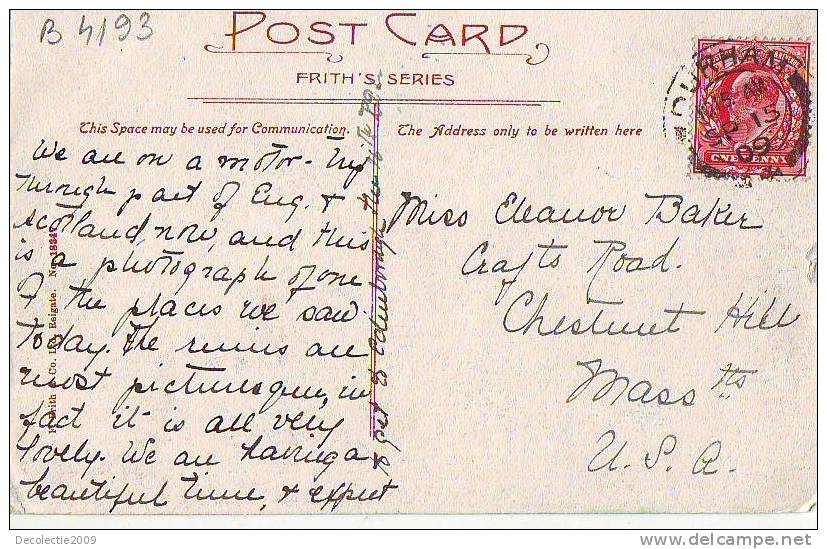 B 4193
POST CARD
FRITH'S SERIES
This Space may be used for Communication.
The Address only to be written here
We are on a motor-trip
through part of Eng. &
Scotland, now, and this
is a photograph of one
of the places we saw
today. The ruins are
most picturesque, in
fact it is all very
lovely. We are having a
beautiful time, & expect
to get to Edinborough the
Miss Eleanor Baker
Crafts Road.
Chestnut Hill
Mass tts
U. S. A.
DURHAM
SP 15
09
ONE PENNY
Frith & Co. Ltd. Reigate. No. 1834
Decolectie2009
delcampe.net